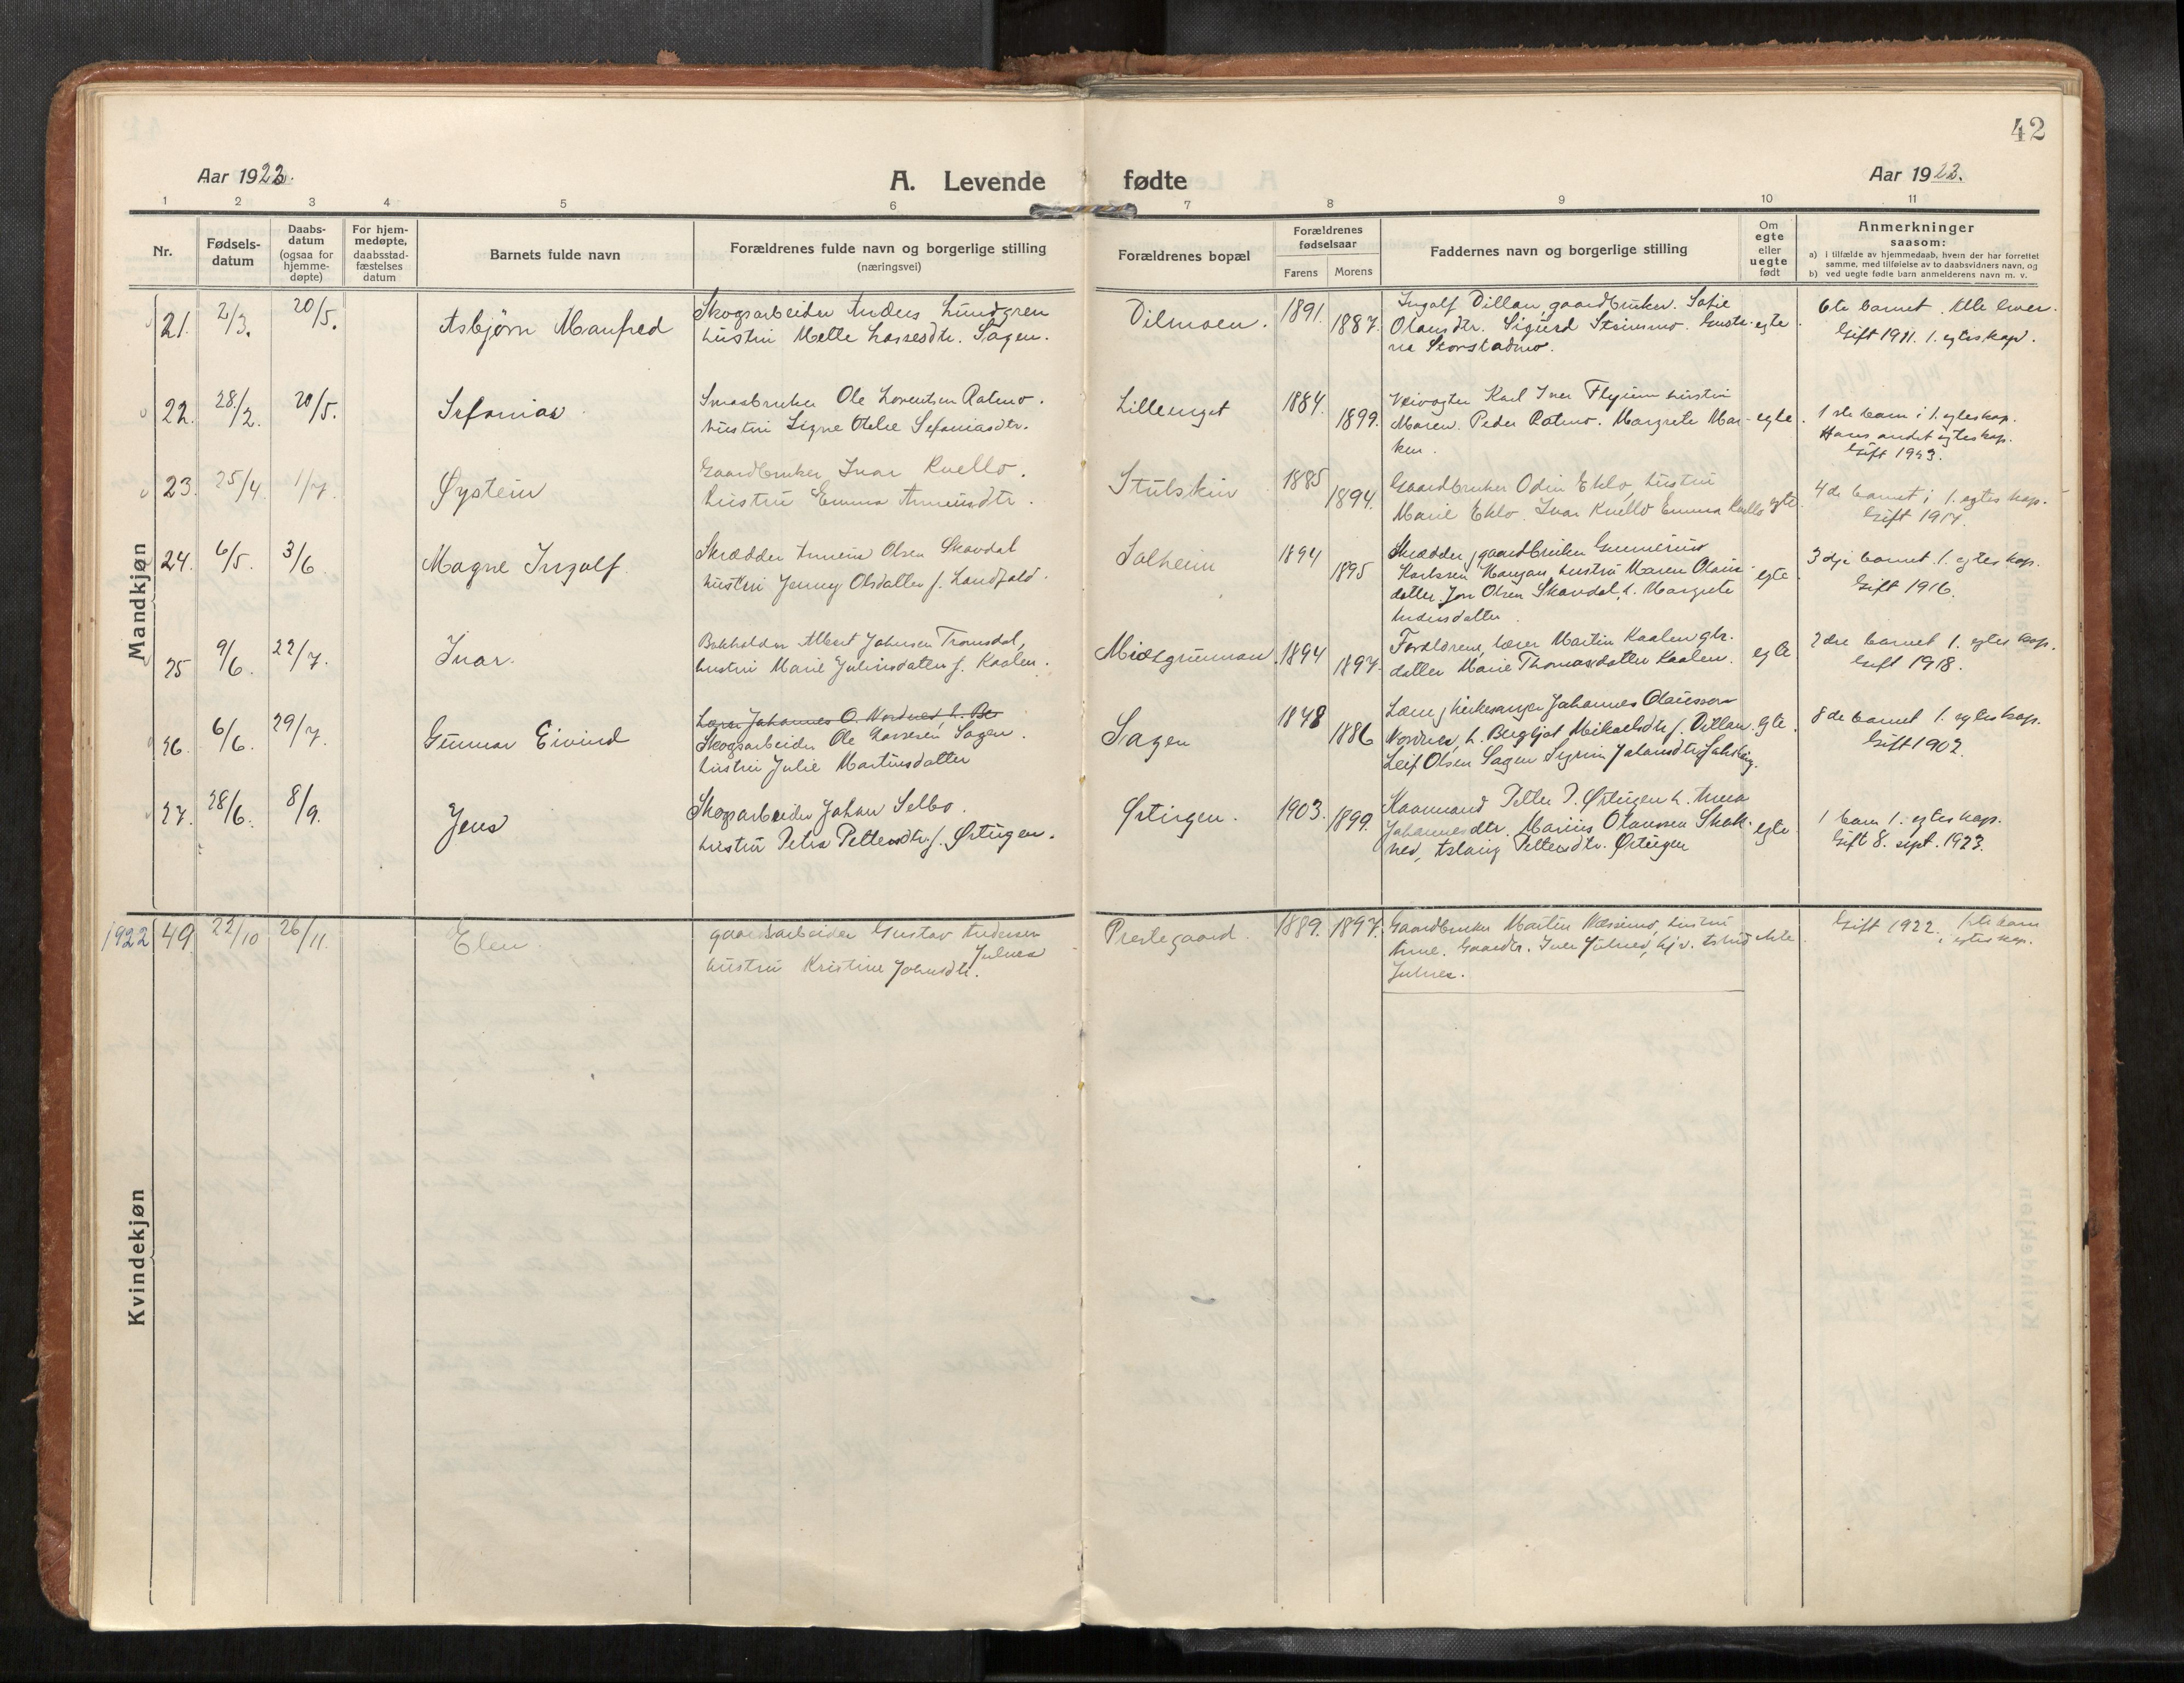 42
Aar 1923.
A. Levende fødte
Aar 1923.
1 2 3 4 5 6 7 8 9 10 11
Nr.
Fødsels-
datum
Daabs-
datum
(ogsaa for
hjemme-
døpte)
For hjem-
medøpte,
daabsstad-
fæstelses
datum
Barnets fulde navn
Forældrenes fulde navn og borgerlige stilling
(næringsvei)
Forældrenes bopæl
Forældrenes
fødselsaar
Farens Morens
Faddernes navn og borgerlige stilling
Om
egte
eller
uegte
født
Anmerkninger
saasom:
a) i tilfælde av hjemmedaab, hvem der har forrettet
samme, med tilføielse av to daabsvidners navn, og
b) ved uegte fødte barn anmelderens navn m. v.
Mandkjøn
21. 2/3. 20/5. Asbjørn Manfred
Skogsarbeider Anders Lundgren
hustru Mette Lassesdtr. Sagen.
Dilmoen. 1891. 1887.
Ingolf Dillan, gaardbruker. Sofie
Olausdtr. Sigurd Strinmo.
na Storstadmo.
egte.
6te barnet. Alle lever.
Gift 1911. 1. egteskap.
22. 28/2. 20/5. Sefanias
Smaabruker Ole Lorentsen Ratmo.
hustru Signe Otelie Sefaniasdtr.
Lilleenget 1884. 1899.
Veivogter Karl Iver Flyum hustru
Maren. Peder Ratmo. Margrete Mar-
ken.
egte.
1ste barn i 1. egteskap.
Hans andet egteskap.
Gift 1923.
23. 25/4. 1/7. Øystein
Gaardbruker Ivar Kvello.
hustru Emma Arneusdtr.
Stulskin 1885 1894.
Gaardbruker Odin Eklo, hustru
Marie Eklo. Ivar Kvello Emma Kvello
egte.
4de barnet i 1. egteskap.
Gift 1914.
24. 6/5. 3/6. Magne Ingolf.
Skrædder Olsen Skavdal
hustru Jenny Olsdatter f. Landfald.
Solheim 1894 1895
Skrædder, gaardbruker Gunnerius
Karlssen hustru Maren Olaus-
datter. Jon Olsen Skavdal, h. Margrete
Andersdatter.
egte.
3dje barnet. 1. egteskap.
Gift 1916.
25 9/6. 22/7. Ivar.
Bokholder Albert Johnsen Tromsdal,
hustru Marie Juliusdatter f. Kaalen.
Midtgrunnan. 1894 1897.
Forældrene, lærer Martin Kaalen,
datter Marie Thomasdatter Kaalen.
egte
2dre barnet 1. egteskap.
Gift 1918.
26. 6/6. 29/7. Gunnar Eivind
Lærer Johannes O. Nordnes, h. Be
Skogsarbeider Ole Lassesen Sagen.
hustru Julie Martinsdatter
Sagen 1878 1886
Lærer, kirkesanger Johannes Olaussson
Nordnes, h. Bergljot Mikaelsdtr f. Dillan.
Leif Olsen Sagen
egte.
8de barnet 1. egteskap.
Gift 1902.
27. 28/6. 8/9. Jens
Skogsarbeider Johan Selbo.
hustru Petra Pettersdtr f. Ørtugen.
Ørtugen. 1903. 1899.
Kaarmand Petter P. Ørtugen h. Anna
Johannesdtr. Marius Olaussen Skak-
nes, Aslaug Pettersdtr. Ørtugen
egte.
1 barn 1. egteskap.
Gift 8. sept. 1923.
Kvindekjøn
1922 49. 22/10 26/11. Elen.
gaardsarbeider Gustav Andersen
Julnes
hustru Kristine Johnsdtr.
Prestegaard. 1889. 1897.
Gaardbruker Martin hustru
Anne. Gaardbr. Iver Julnes,
Julnes.
Gift 1922. 1ste barn
1. egteskap.